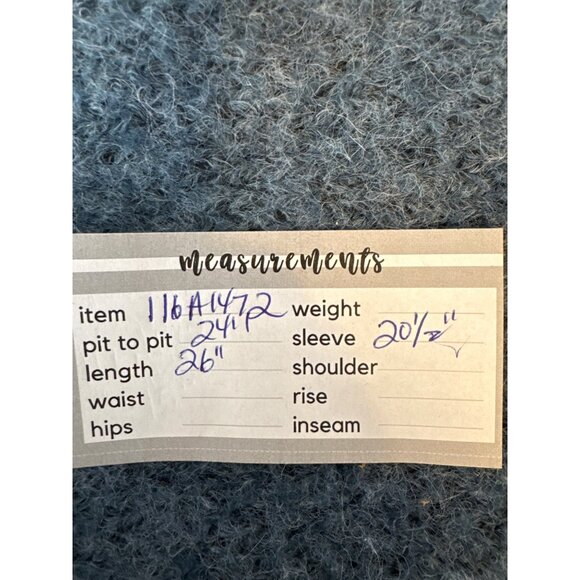 measurements
item 116A1472 weight
pit to pit 24" sleeve 20 1/2"
length 26" shoulder
waist rise
hips inseam